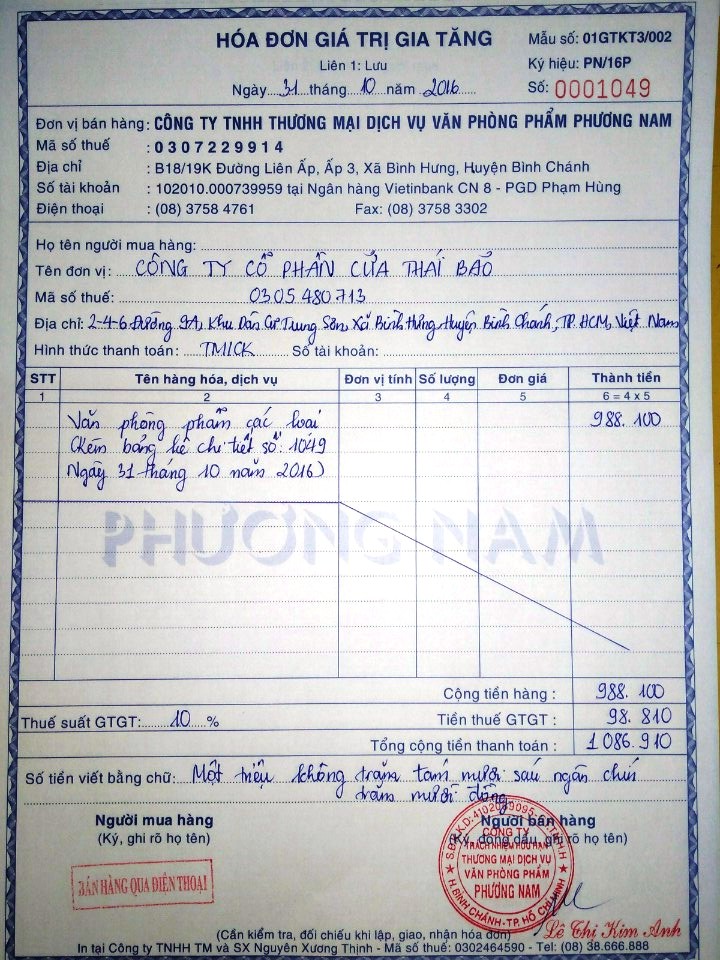 HÓA ĐƠN GIÁ TRỊ GIA TĂNG
Mẫu số: 01GTKT3/002
Liên 1: Lưu
Ký hiệu: PN/16P
Ngày 31 tháng 10 năm 2016
Số: 0001049
Đơn vị bán hàng: CÔNG TY TNHH THƯƠNG MẠI DỊCH VỤ VĂN PHÒNG PHẨM PHƯƠNG NAM
Mã số thuế : 0307229914
Địa chỉ : B18/19K Đường Liên Ấp, Ấp 3, Xã Bình Hưng, Huyện Bình Chánh
Số tài khoản : 102010.000739959 tại Ngân hàng Vietinbank CN 8 - PGD Phạm Hùng
Điện thoại : (08) 3758 4761 Fax: (08) 3758 3302
Họ tên người mua hàng:
Tên đơn vị: CÔNG TY CỔ PHẦN CỬA THÁI BẢO
Mã số thuế: 0305480713
Địa chỉ: 2-4-6 Đường 9A, Khu Dân Cư Trung Sơn, Xã Bình Hưng, Huyện Bình Chánh, TP. HCM, Việt Nam
Hình thức thanh toán: TM/CK Số tài khoản:
STT Tên hàng hóa, dịch vụ Đơn vị tính Số lượng Đơn giá Thành tiền
1 2 3 4 5 6 = 4 x 5
Văn phòng phẩm các loại 988.100
(Kèm bảng kê chi tiết số: 1049
Ngày 31 tháng 10 năm 2016)
PHƯƠNG NAM
Cộng tiền hàng : 988.100
Thuế suất GTGT: 10 % Tiền thuế GTGT : 98.810
Tổng cộng tiền thanh toán : 1 086.910
Số tiền viết bằng chữ: Một triệu không trăm tám mươi sáu ngàn chín
trăm mười đồng.
Người mua hàng Người bán hàng
(Ký, ghi rõ họ tên) (Ký, đóng dấu, ghi rõ họ tên)
BÁN HÀNG QUA ĐIỆN THOẠI
CÔNG TY
TRÁCH NHIỆM HỮU HẠN
THƯƠNG MẠI DỊCH VỤ
VĂN PHÒNG PHẨM
PHƯƠNG NAM
H.BÌNH CHÁNH - TP. HỒ CHÍ MINH
Lê Thị Kim Anh
(Cần kiểm tra, đối chiếu khi lập, giao, nhận hóa đơn)
In tại Công ty TNHH TM và SX Nguyên Xương Thịnh - Mã số thuế: 0302464590 - Tel: (08) 38.666.888